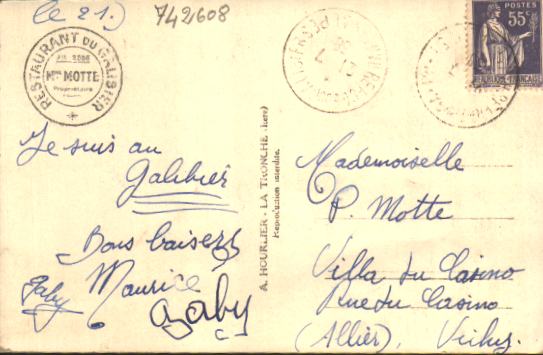 (le 21.)
742608
RESTAURANT DU GALIBIER
Mme MOTTE
Propriétaire
POSTES
55c
REPUBLIQUE FRANÇAISE
Je suis au
Galibier
Bons baisers
Maurice
Gaby
Gaby
A. HOURLIER - LA TRONCHE (Isère)
Reproduction interdite.
Mademoiselle
P. Motte
Villa du Casino
Rue du Casino
(Allier). Vichy.